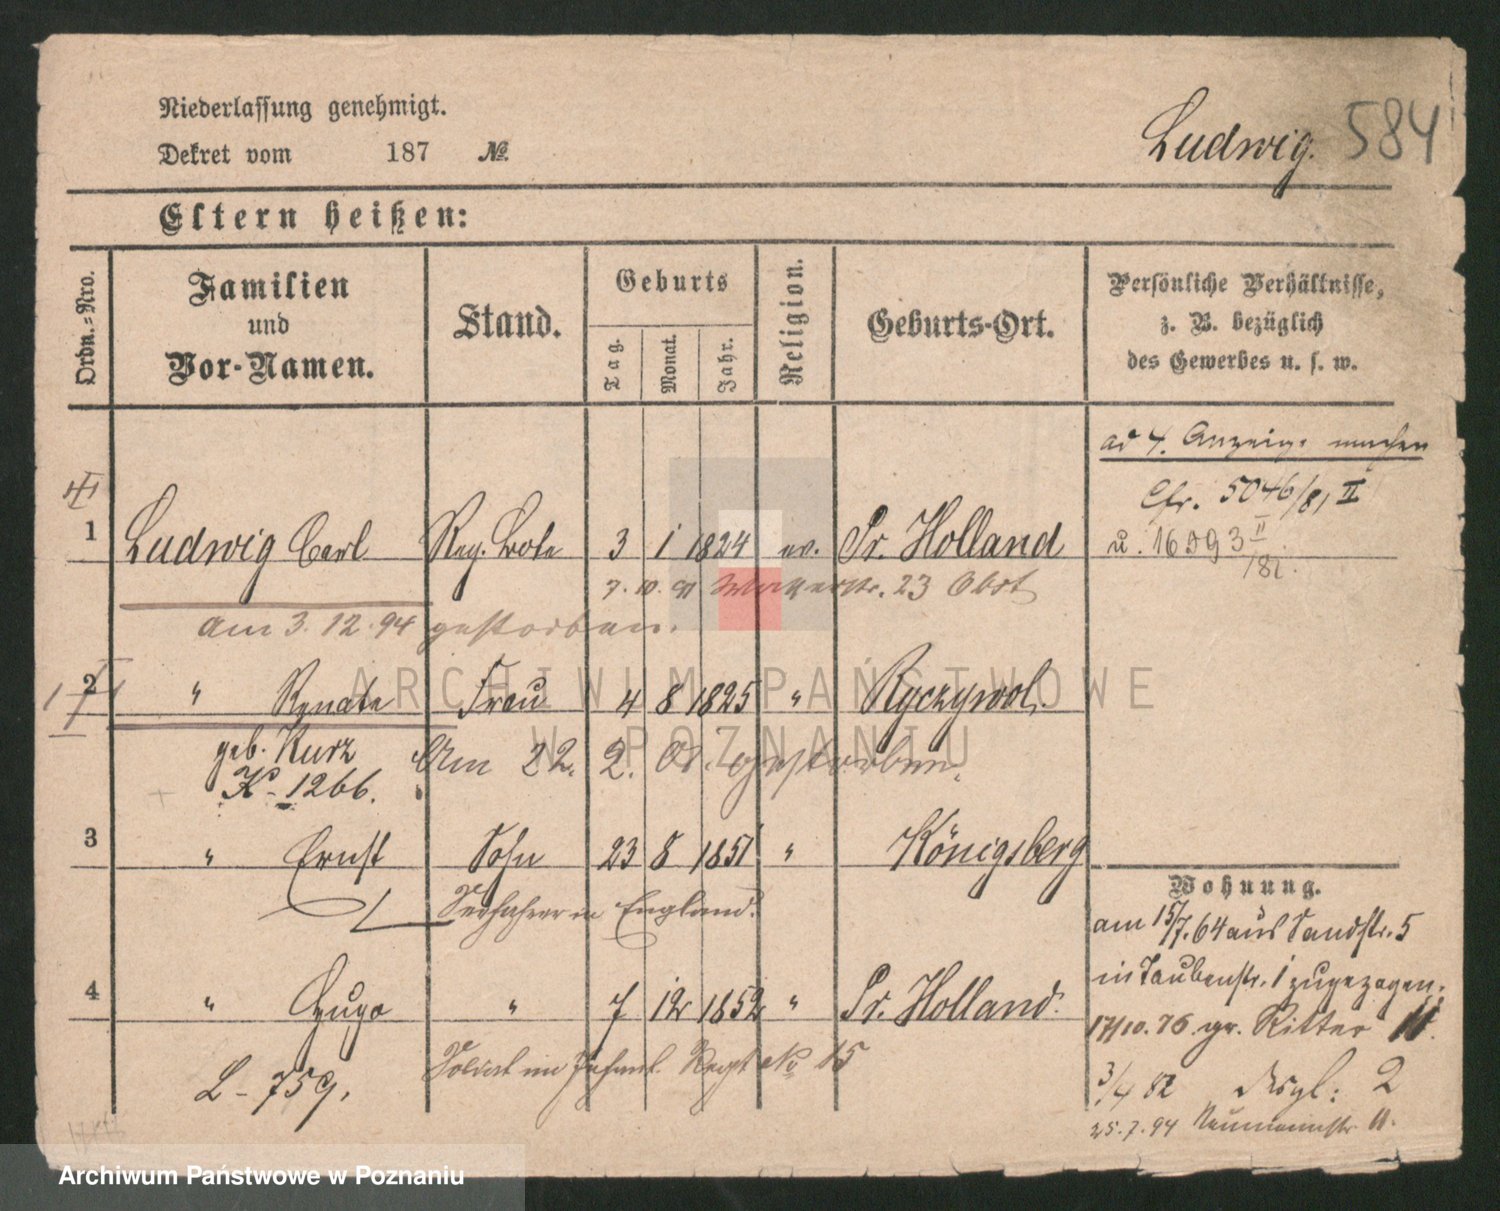 Niederlassung genehmigt.
Dekret vom 187 №.
Ludwig. 584
Eltern heißen:
Ordn.-Nro.
Familien
und
Vor-Namen.
Stand.
Geburts
Tag.
Monat.
Jahr.
Religion.
Geburts-Ort.
Persönliche Verhältnisse,
z. B. bezüglich
des Gewerbes u. s. w.
ad 4. Anzeige machen
Cfr. 5046/81 II
u. 16593 II/81.
1 Ludwig Carl Reg. Bote 3 1 1824 ev. Pr. Holland
7. 10. 91 23 Obst
am 3. 12. 94 gestorben.
2 " Renate Frau 4 8 1825 " Ryczywol.
geb. Kurz Am 22. 2. 01. gestorben.
K - 1266.
3 " Ernst Sohn 23 8 1851 " Königsberg
Seefahrer in England.
4 " Hugo " 7 12 1852 " Pr. Holland.
L - 759. Soldat im Regt No 15
Wohnung.
am 15/7. 64 aus Sandstr. 5
in Taubenstr. 1 zugezogen.
17/10. 76. gr. Ritter 11.
3/4 82 desgl: 2
25. 7. 94 Naumannstr. 11.
ARCHIWUM PAŃSTWOWE
W POZNANIU
Archiwum Państwowe w Poznaniu